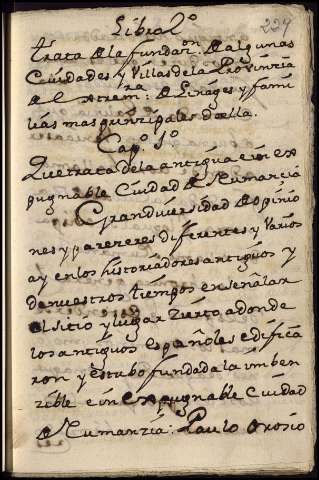 Libro 2º 224
trata de la fundaron de algunas
Ciudades y Villas de la Provincia
de Extremra de Linages y famí
lias mas principales della.
Capº 1º
Que trata de la antigua e in ex
pugnable Ciudad de Numancia
Grandiversidad de opinio
nes y pareceres diferentes y varios
ay en los historiadores antiguos y
de nuestros tiempos en señalar
el sitio y lugar zierto adonde
los antiguos españoles edifica
ron y estubo fundada la ymben
zible e in expugnable ciudad
de Numanzia: Paulo Orosio